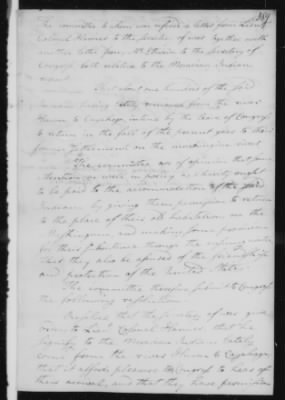 389
The committee to whom was referred a letter from Lieut.
Colonel Harmar to the Secretary of war together with
another letter from Mr Edwin to the Secretary of
Congress both relative to the Moravian Indian
report
That about one hundred of the said
Indians having lately removed from the river
Huron to Cayahoga intend by the leave of Congress
to return in the fall of the present year to their
former settlement on the muskingum river
The committee are of opinion that some
attention as well in policy as charity ought
to be paid to the accommodation of the said
Indians by giving them permission to return
to the place of their old habitation on the
Muskingum, and making some provision
for their subsistence through the ensuing winter
that they also be assured of the friendship
and protection of the United States
The committee therefore submit to Congress
the following resolution.
Resolved that the Secretary of war give
orders to Lieut Colonel Harmar that he
signify to the Moravian Indians lately
come from the river Huron to Cayahoga
that it affords pleasure to Congress to hear of
their arrival, and that they have permission